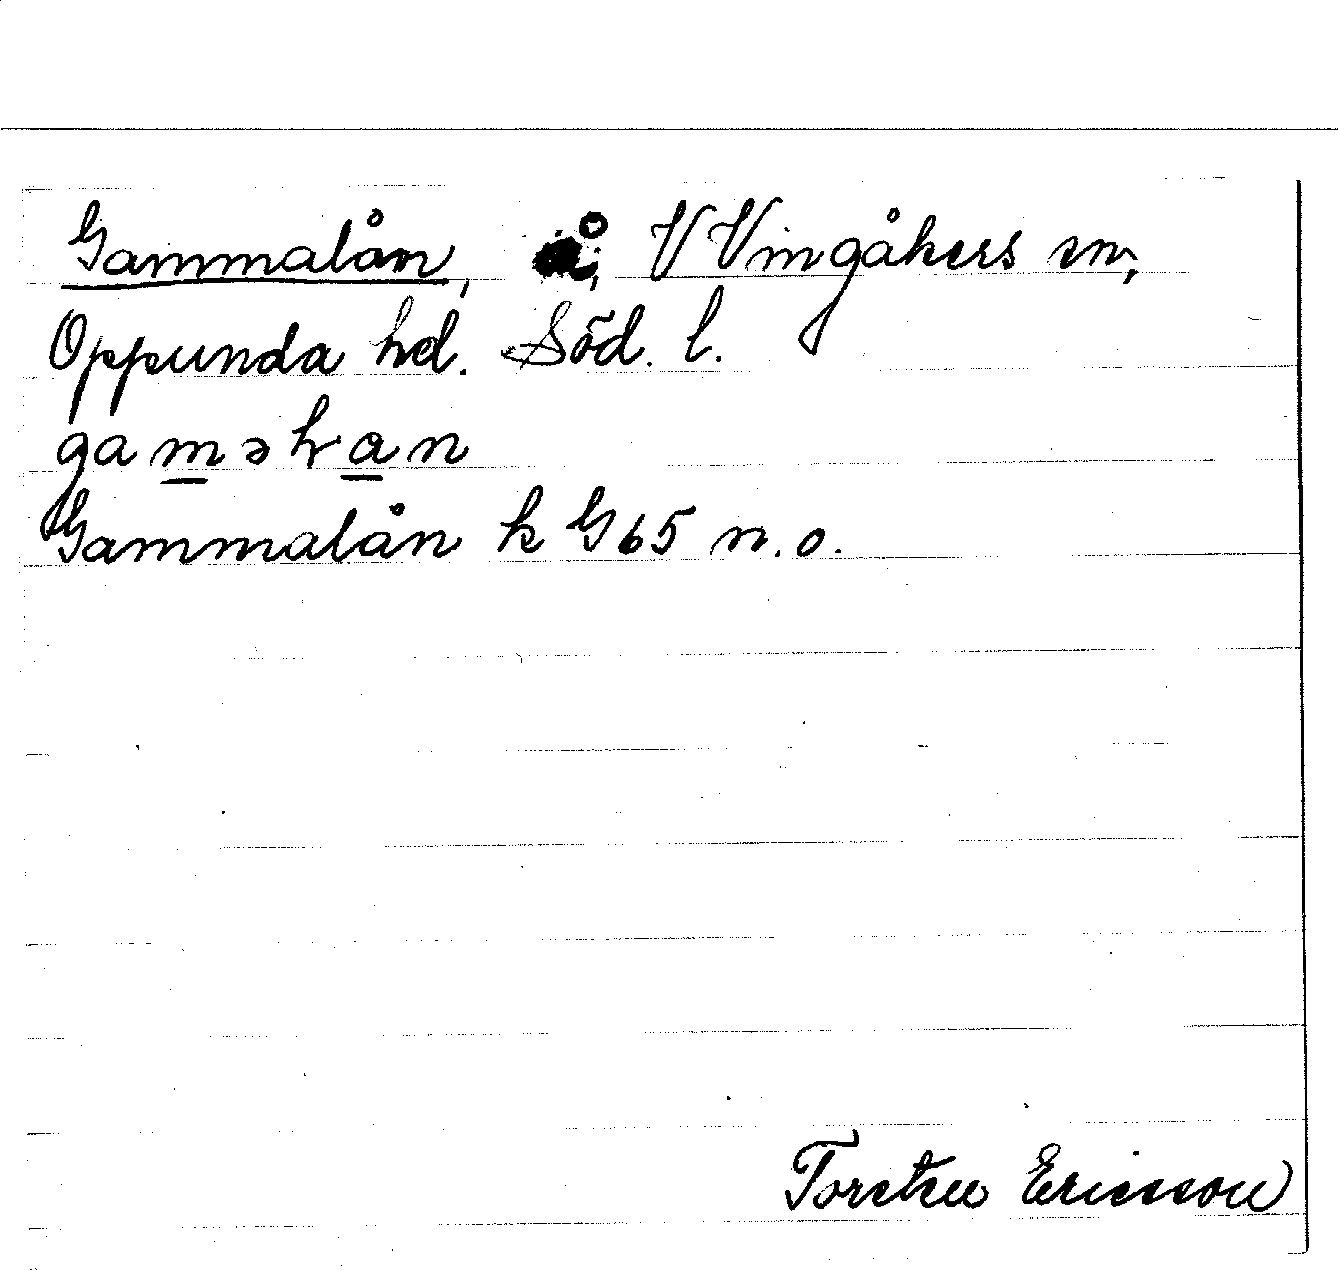 Gammalån, å, V Vingåkers sn,
Oppunda hd. Söd. l.
Gammalån k G65 n.o.
Torsten Ericsson